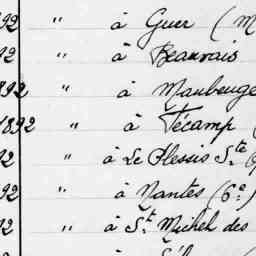 92 " à Guer (M
92 " à Beauvais
892 " à Maubeuge
1892 " à Fécamp (
92 " à Le Plessis Ste
92 " à Nantes (6e)
92 " à St Michel des